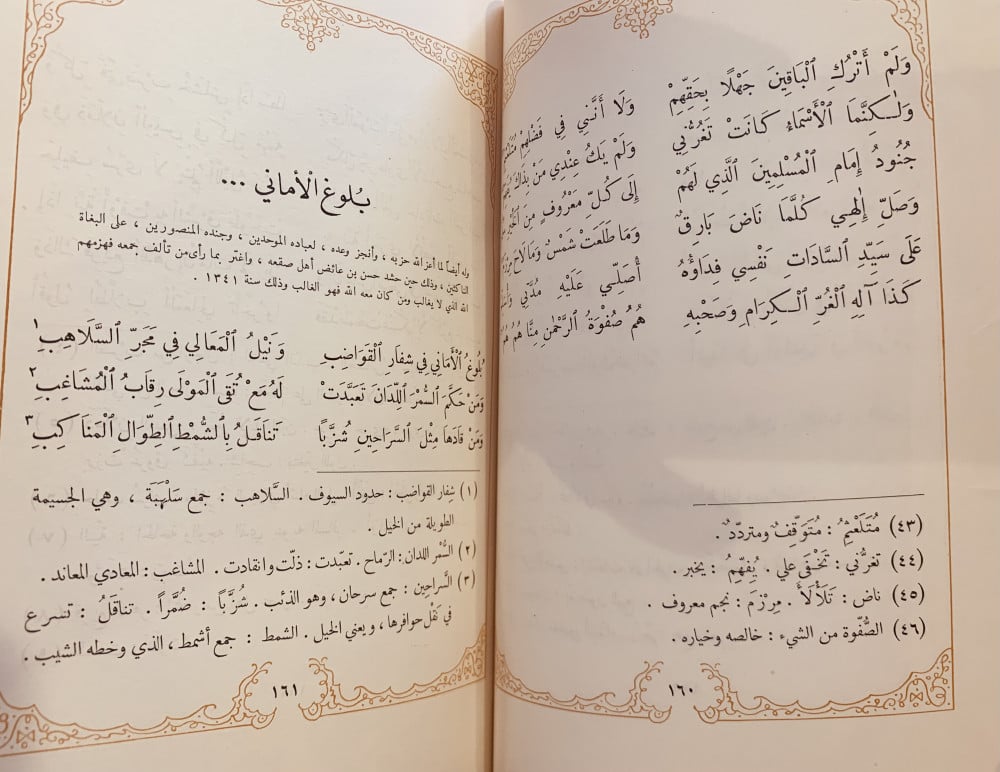 وَلَمْ أَتْرُكِ ٱلْبَاقِينَ جَهْلًا بِحَقِّهِمْ وَلَا أَنَّنِي فِي فَضْلِهِمْ
وَلَـٰكِنَّمَا ٱلْأَسْمَاءُ كَانَتْ تَغُرُّنِي وَلَمْ يَكُ عِنْدِي مَنْ بِذَاكَ
جُنُودُ إِمَامِ ٱلْمُسْلِمِينَ ٱلَّذِي لَهُمْ إِلَى كُلِّ مَعْرُوفٍ مِنَ
وَصَلِّ إِلٰهِي كُلَّمَا نَاضَ بَارِقٌ وَمَا طَلَعَتْ شَمْسٌ وَمَا لَاحَ
عَلَى سَيِّدِ ٱلسَّادَاتِ نَفْسِي فِدَاؤُهُ أُصَلِّي عَلَيْهِ مُدَّتِي
كَذَا آلِهِ ٱلْغُرِّ ٱلْـكِرَامِ وَصَحْبِهِ هُمُ صُفْوَةُ ٱلرَّحْمٰنِ مِنَّا هُمُ
(٤٣) مُتَلَعْثِمُ : مُتَوَقِّفٌ ومتردّدٌ .
(٤٤) تغرُّني : تَخْفَى علي . يُفَهِّمُ : يخبر .
(٤٥) ناض : تَلَأْلَأَ . مِرْزَمَ : نجم معروف .
(٤٦) الصُّفّوة من الشيء : خالصه وخياره .
١٦٠
بُلوغ الْأماني ...
وله أيضاً لما أعز الله حزبه ، وأنجز وعده ، لعباده الموحدين ، وجنده المنصورين ، على البغاة
الناكثين ، وذلك حين حشد حسن بن عائض أهل صقعه ، واغتر بما رأى من تألف جمعه فهزمهم
الله الذي لا يغالب ومن كان معه الله فهو الغالب وذلك سنة ١٣٤١ .
بُلُوغُ ٱلْأَمَانِي فِي شِفَارِ ٱلْقَوَاضِبِ وَنَيْلُ ٱلْمَعَالِي فِي مَجَرِّ ٱلسَّلَاهِبِ١
وَمَنْ حَكَّمَ ٱلسُّمْرَ ٱللِّدَانَ تَعَبَّدَتْ لَهُ مَعْ تُقَى ٱلْمَوْلَى رِقَابُ ٱلْمُشَاغِبِ٢
وَمَنْ قَادَهَا مِثْلَ ٱلسَّرَاحِينِ شُزَّبًا تَنَاقَلُ بِٱلشُّمْطِ ٱلطِّوَالِ ٱلْمَنَاكِبِ٣
(١) شِفار القواضب : حدود السيوف . السَّلاهب : جمع سَلْهَبَة ، وهي الجسيمة
الطويلة من الخيل .
(٢) السُّمْر اللدان : الرّماح . تعبّدت : ذلّت وانقادت . المشاغب : المعادي المعاند .
(٣) السَّراحِين : جمع سرحان ، وهو الذئب . شُزَّباً : ضُمَّراً . تناقَلُ : تسرع
في نَقْل حوافرها ، ويعني الخيل . الشمط : جمع أشمط ، الذي وخطه الشيب .
١٦١